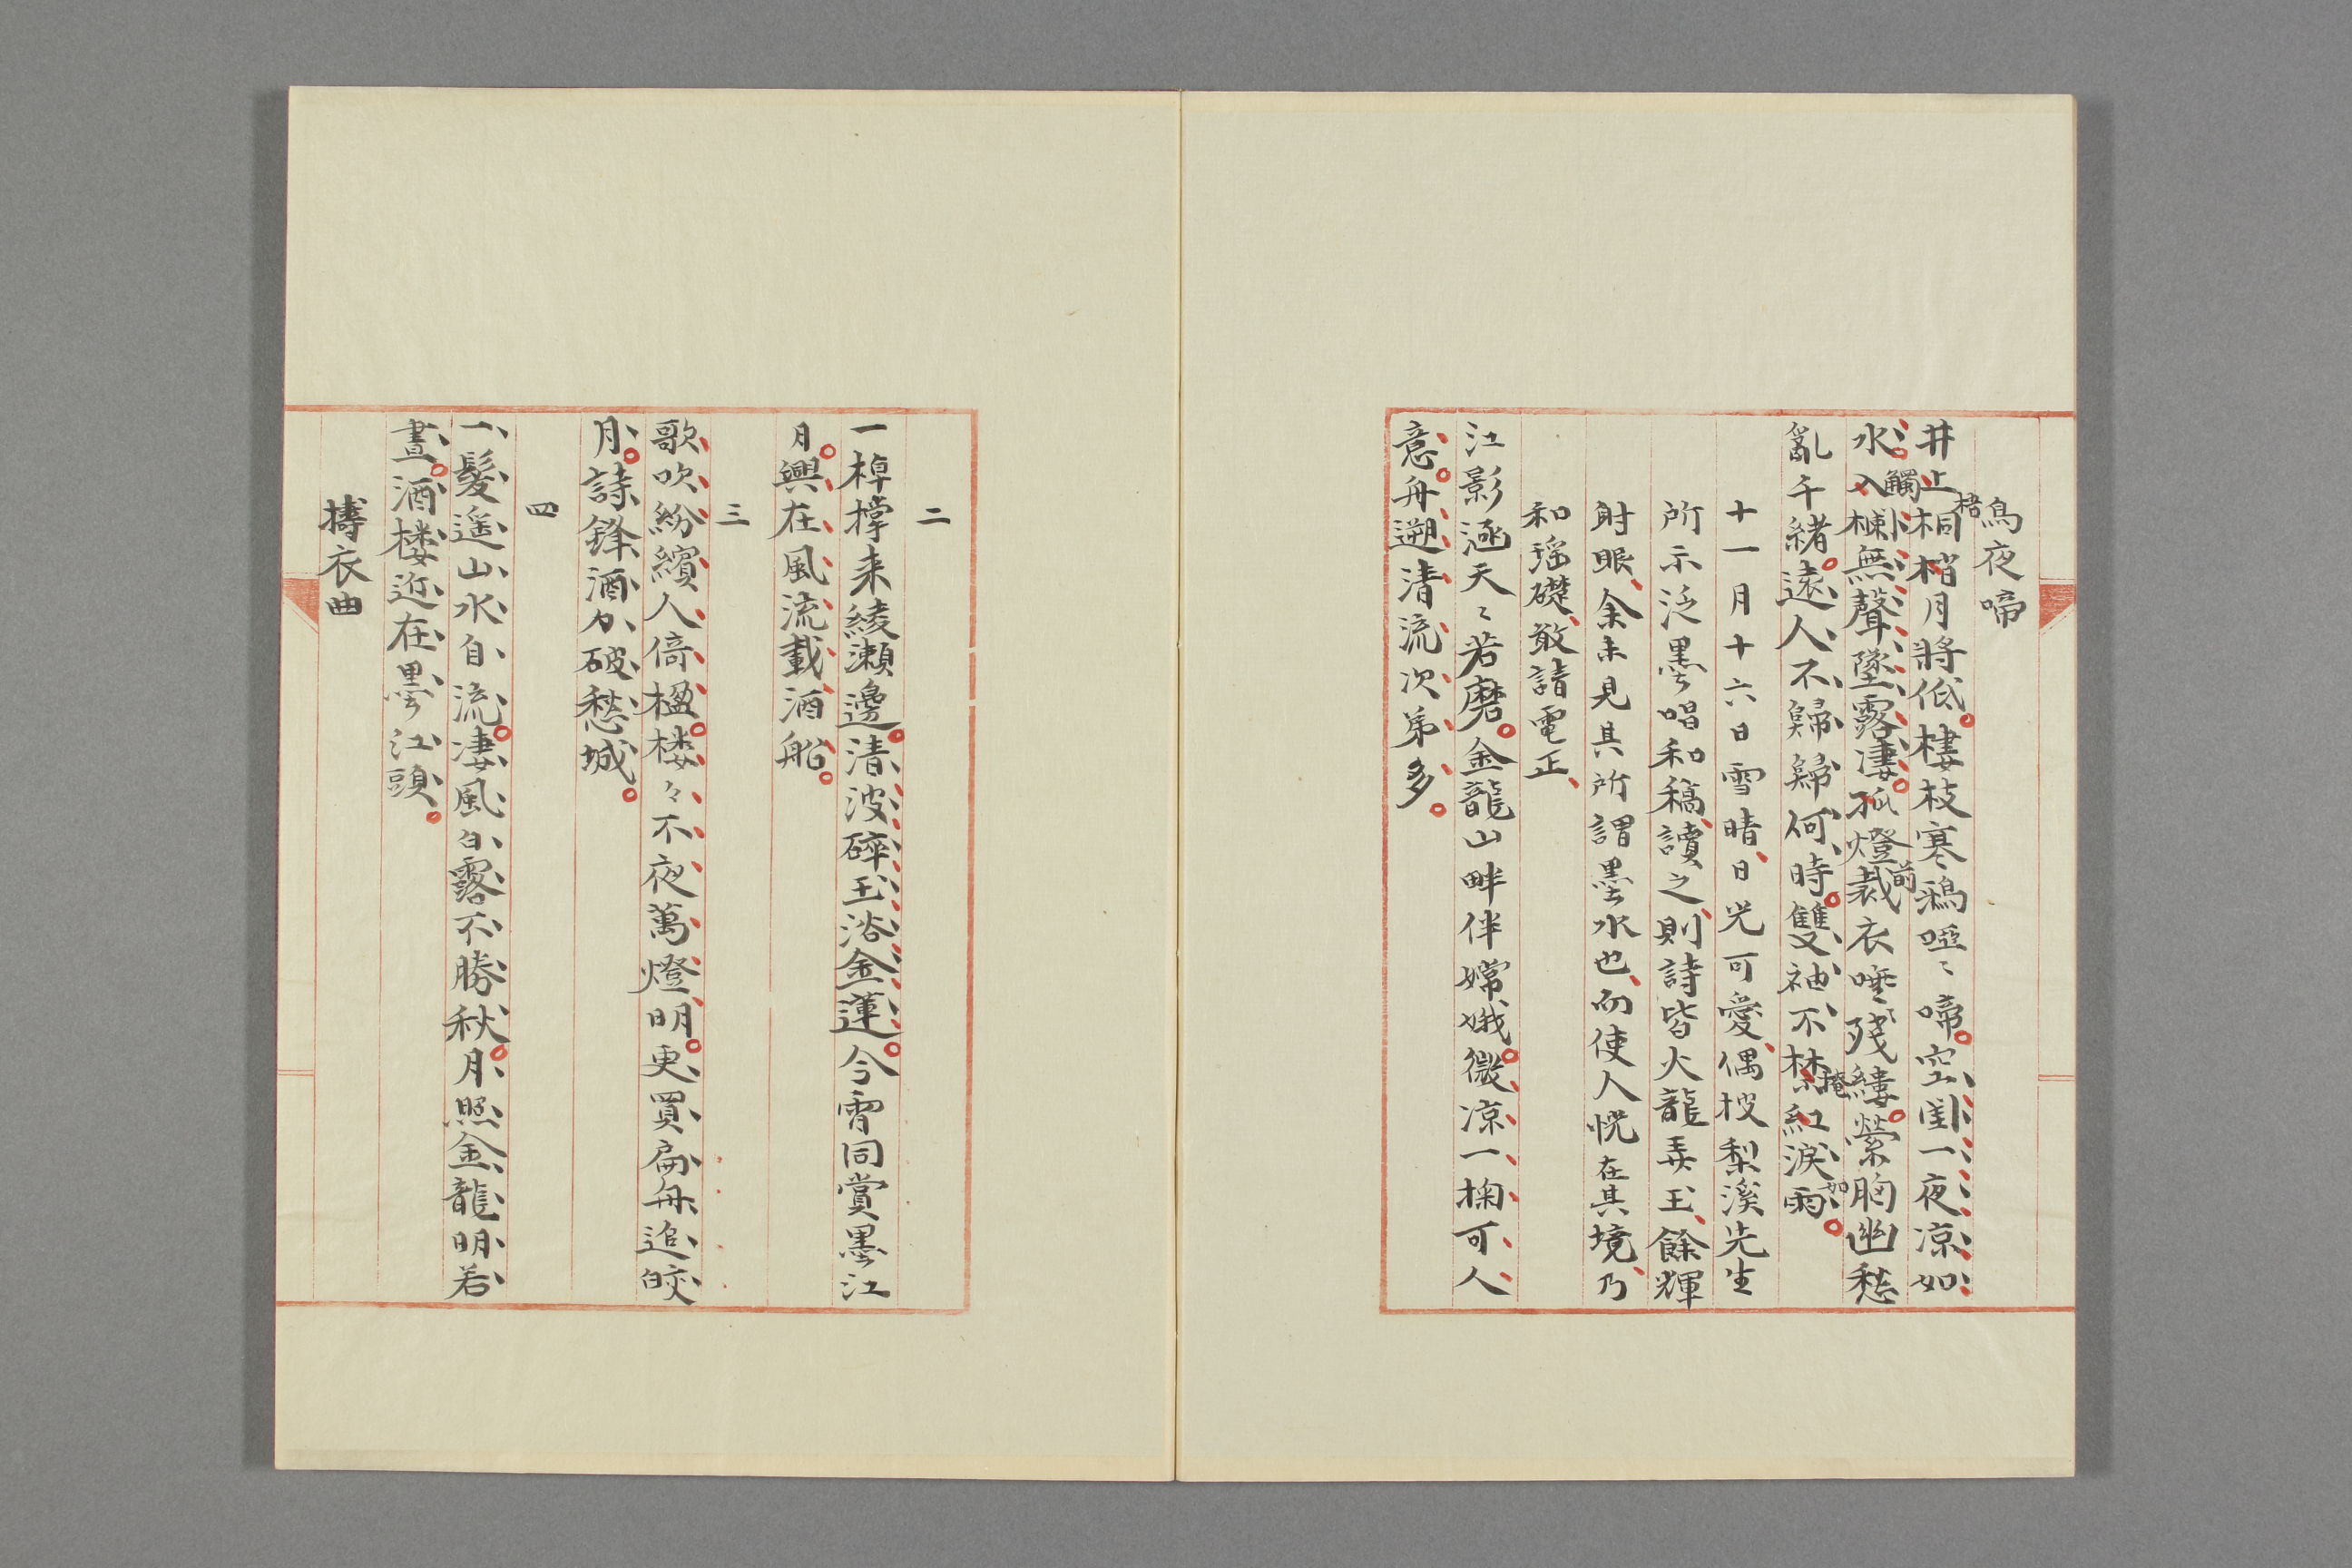 烏夜啼
井上梧桐梢月將低棲枝寒鴉啞〻啼空閨一夜凉如
水入觸棟無聲墜露凄孤燈前裁衣唾殘縷縈胸幽愁
亂千緒遠人不歸歸何時雙袖不禁掩紅淚如雨
十一月十六日雪晴日光可愛偶披梨溪先生
所示泛墨唱和稿讀之則詩皆火龍弄玉餘輝
射眼余未見其所謂墨水也而使人恍在其境乃
和瑤礎敢請電正
江影涵天〻若磨金龍山畔伴嫦娥微凉一掬可人
意舟遡清流次第多
二
一棹撑来綾瀬邊清波碎玉浴金蓮今宵同賞墨江
月興在風流載酒船
三
歌吹紛繽人倚楹楼々不夜萬燈明更買扁舟追皎
月詩鋒酒力破愁城
四
一髪遥山水自流凄風白露不勝秋月照金龍明若
晝酒楼近在墨江頭
擣衣曲